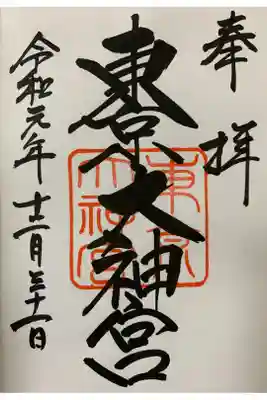 奉拝
東京大神宮
令和元年十二月三十一日
東京
大神宮